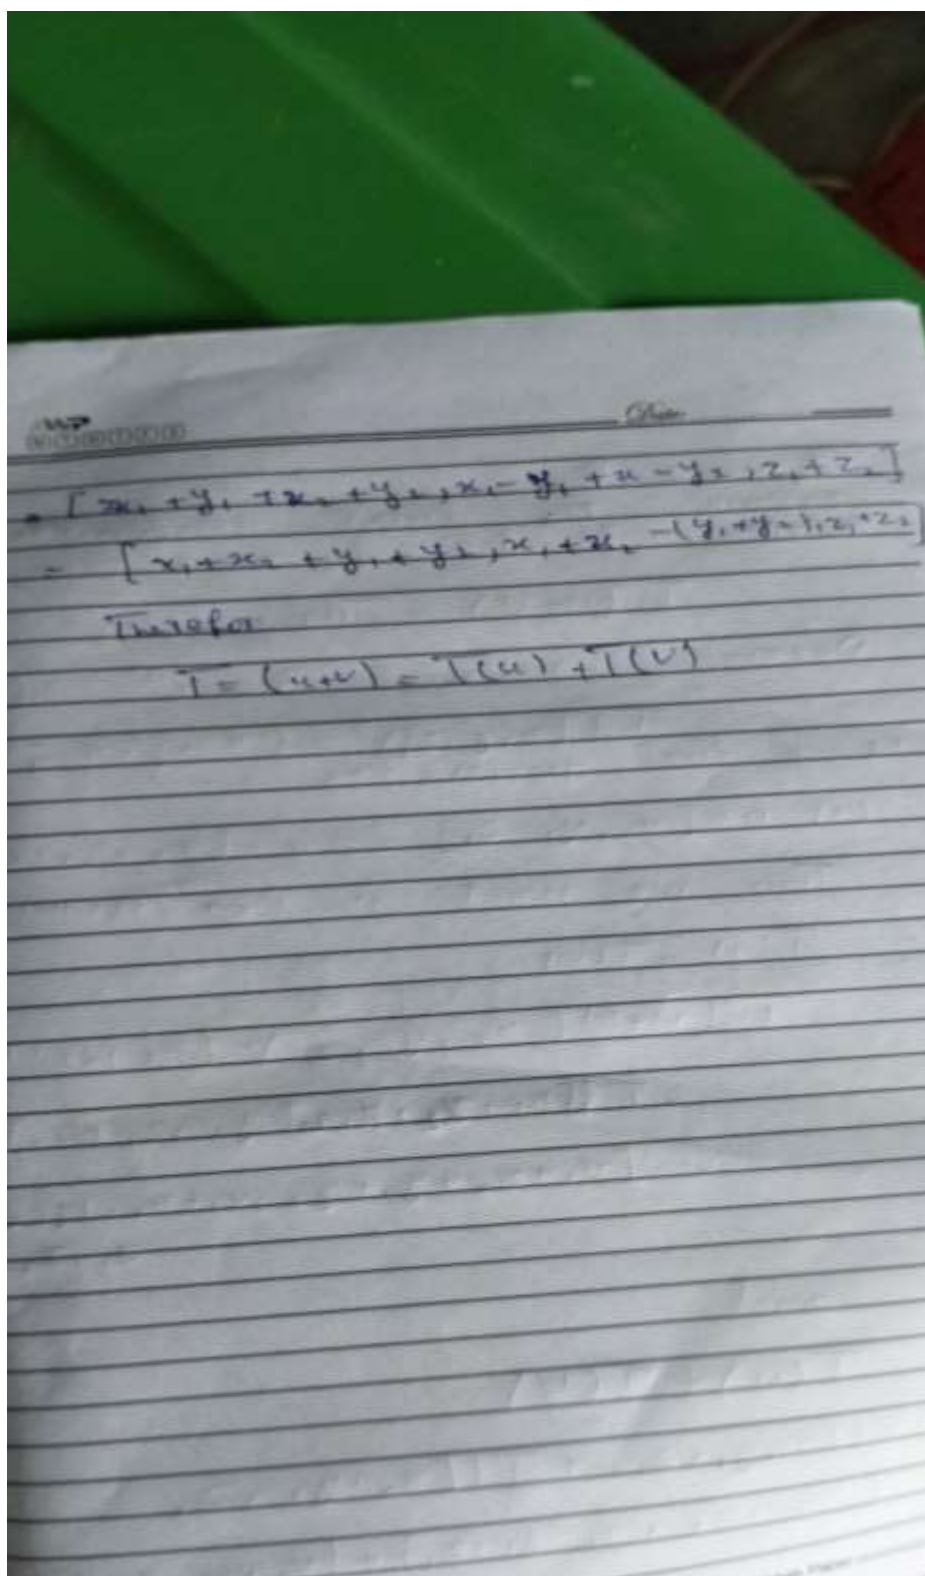 Date
= [x₁ + y₁ + x₂ + y₂, x₁ - y₁ + x - y₂, z₁ + z₂]
= [x₁ + x₂ + y₁ + y₂, x₁ + x₂ - (y₁ + y₂), z₁ + z₂]
Therefor
T = (u+v) = T(u) + T(v)